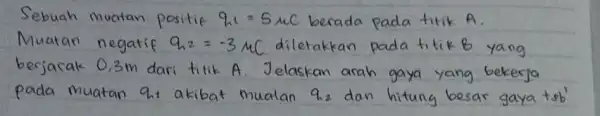 Sebuah muatan positif q1 = 5 μC berada pada titik A.
Muatan negatif q2 = -3 μC diletakkan pada titik B yang
berjarak 0,3m dari titik A. Jelaskan arah gaya yang bekerja
pada muatan q1 akibat muatan q2 dan hitung besar gaya tsb!